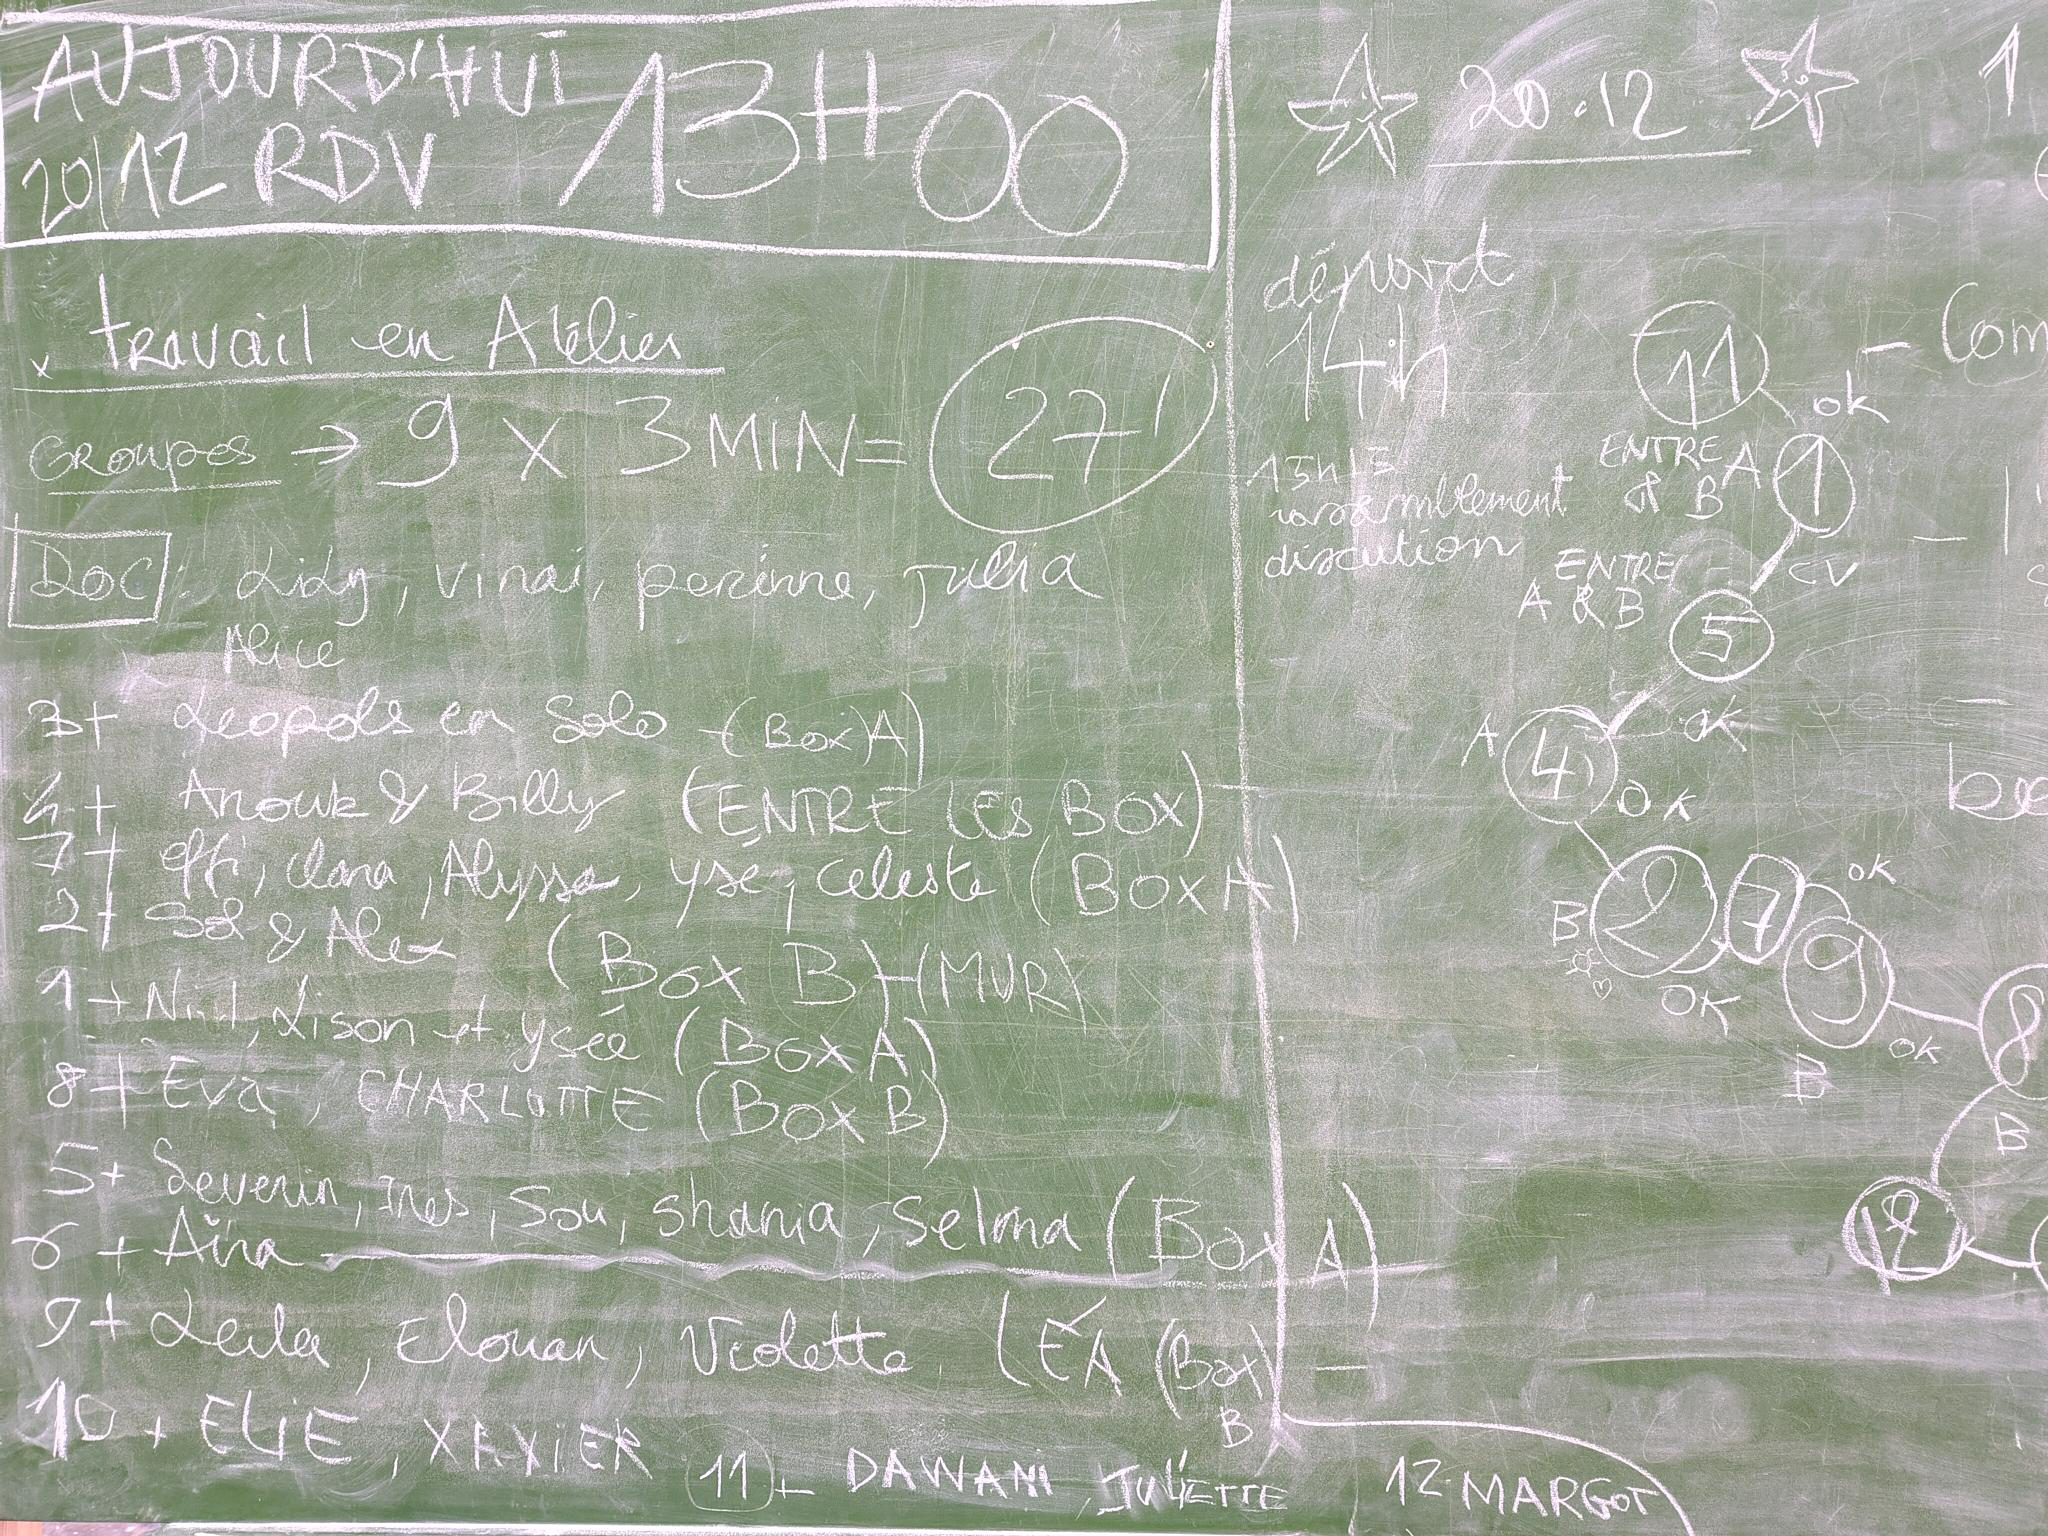 AUJOURD'HUI
20/12 RDV 13H00
x travail en Atelier
GROUPES → 9 X 3 MIN = 27'
DOC : Lidy, vinai, perinne, julia
Alice
3+ Leopols en Solo - (Box A)
4+ Anouk & Billy (ENTRE LES BOX)
7+ effi, clara, Alyssa, ysé, celeste (BOX A)
2+ Sol & Alex (BOX B) - (MUR)
1+ Nil, Lison et yséé (BOX A)
8+ Eva, CHARLOTTE (BOX B)
5+ Severin, Ines, Sou, shania, Selma (BOX A)
6 + Aïna
9+ Leila, Elouan, Violette, LÉA (Box)
B
10 + ELIE, XAVIER
11 - DAWANI, JULIETTE
12 MARGOT
20.12
départ
14h
15h15
rassemblement
discution
11
ok
ENTRE A
& B
1
CV
ENTRE
A & B
5
OK
A 4
OK
B 2 7 9
ok
OK
ok
B
8
B
12
1
- Com